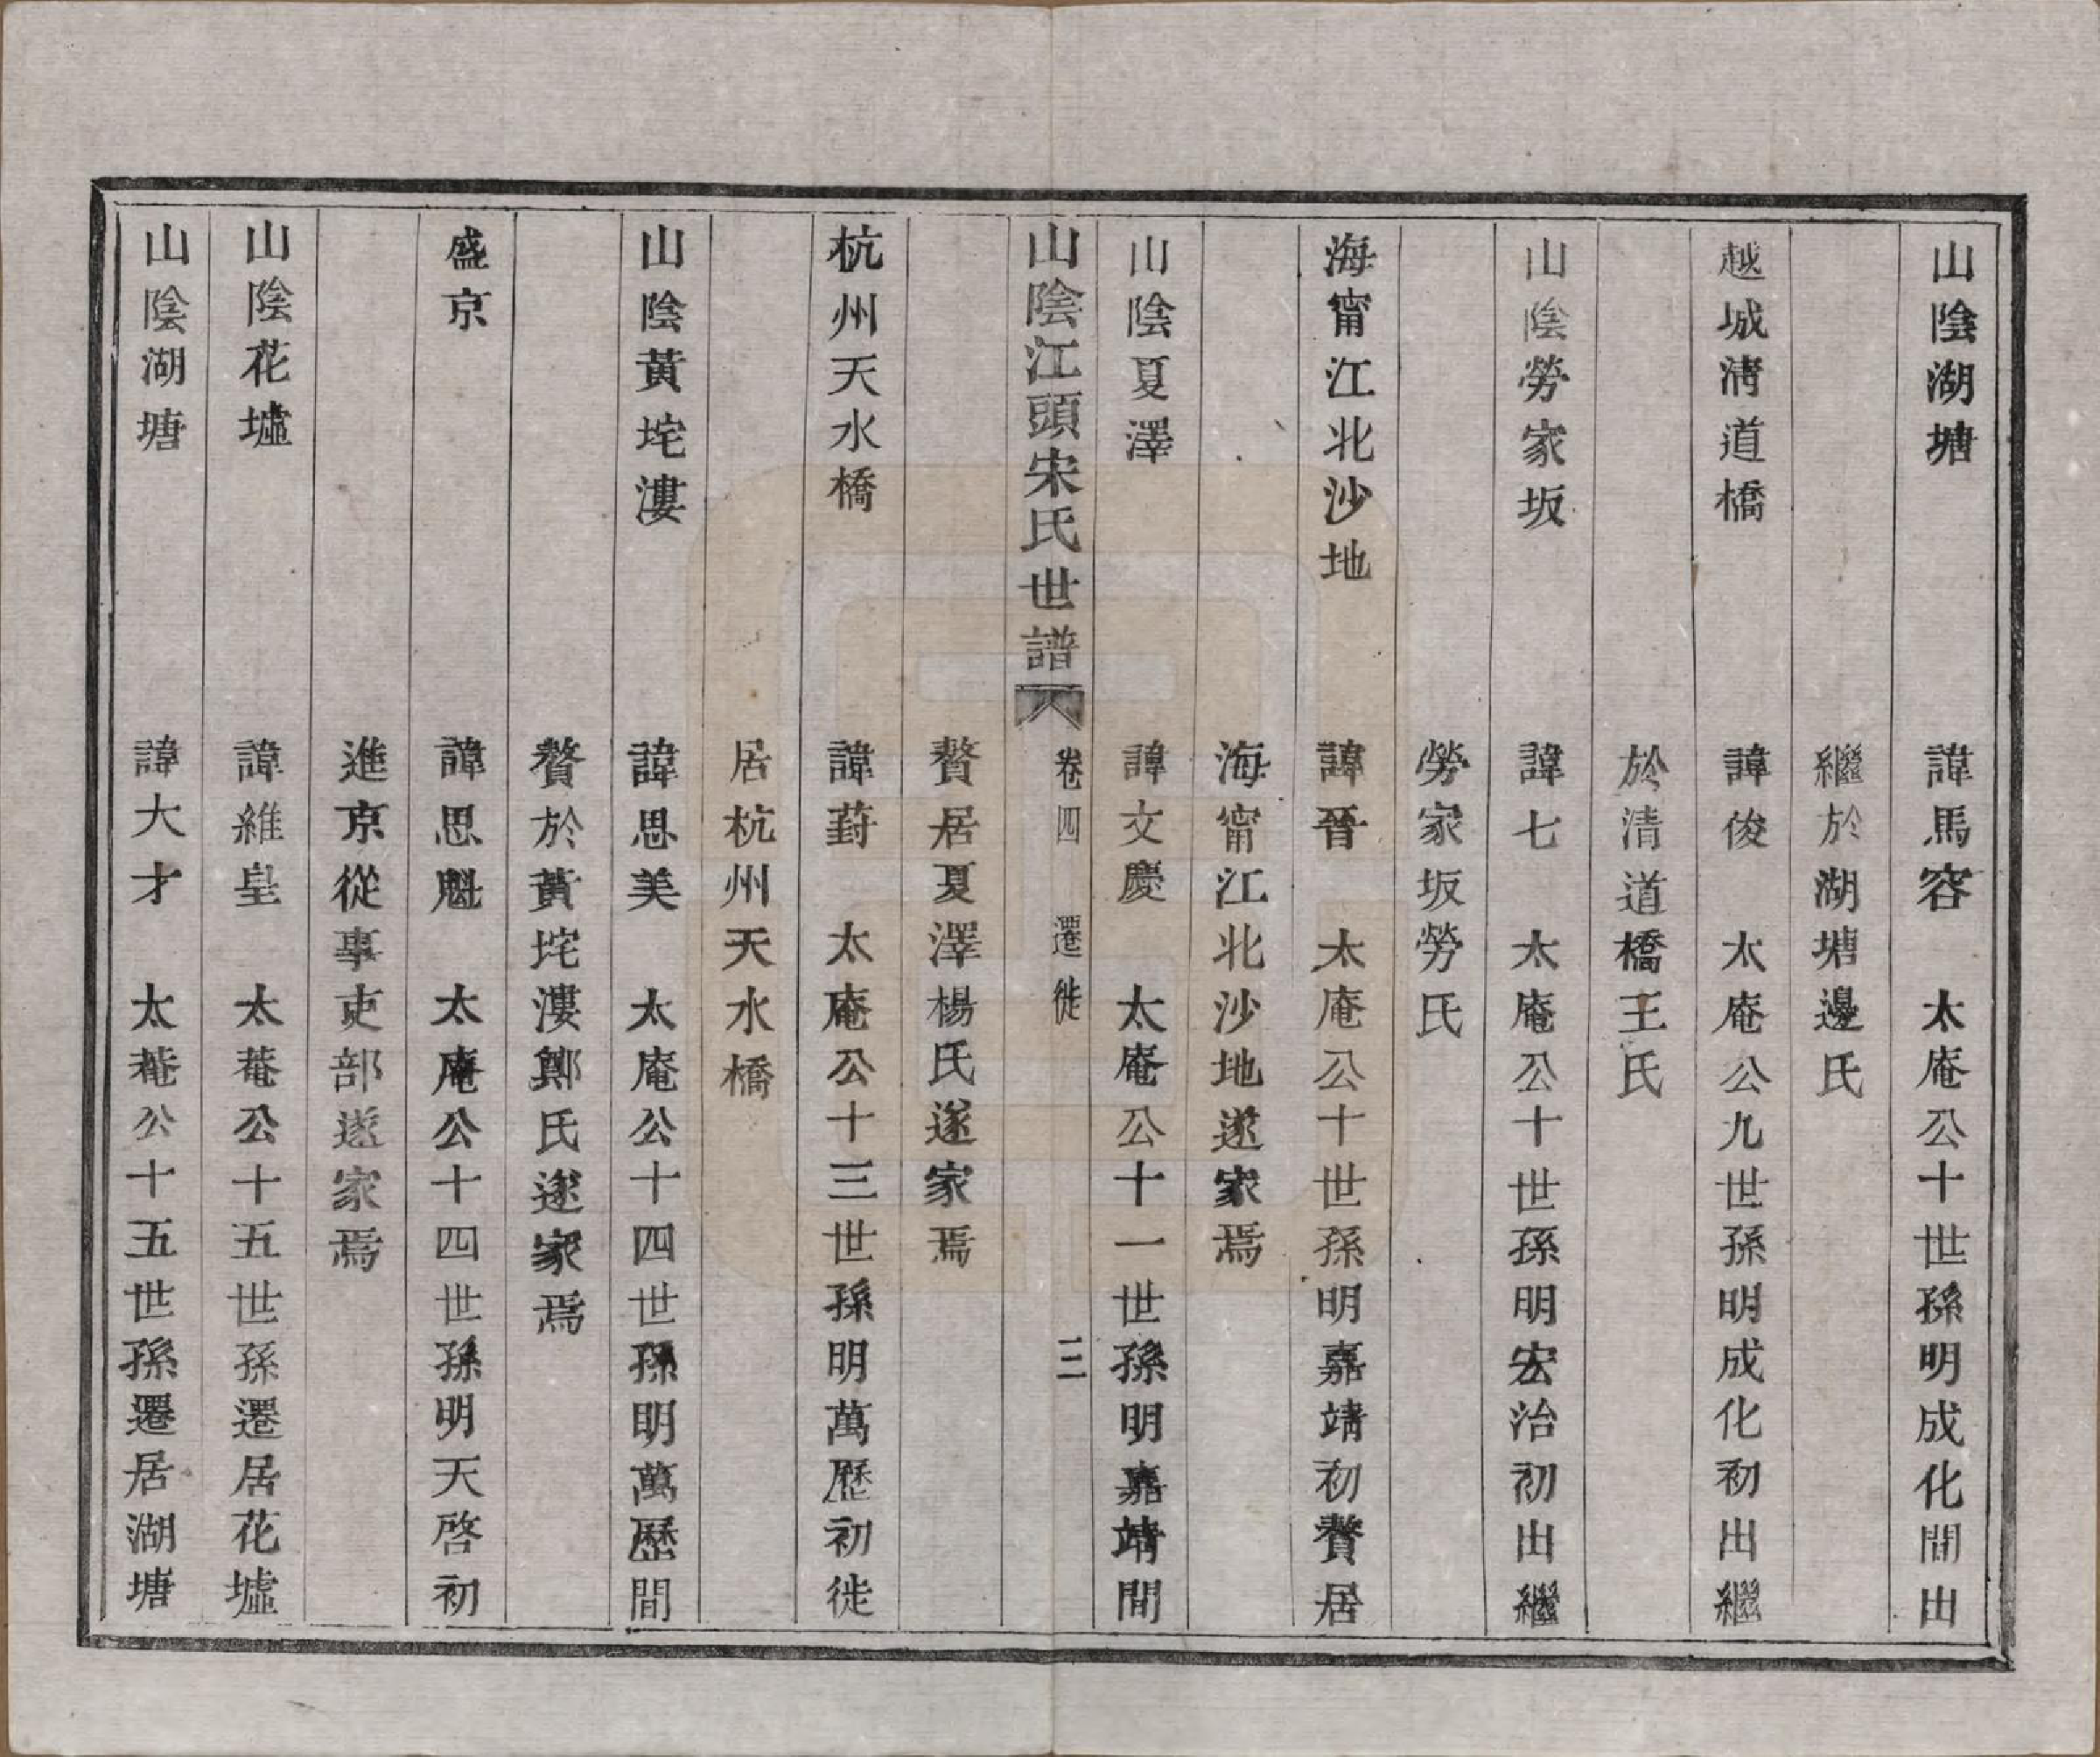 山陰湖塘　諱馬容　太庵公十世孫明成化間出
繼於湖塘邊氏
越城清道橋　諱俊　太庵公九世孫明成化初出繼
於清道橋王氏
山陰勞家坂　諱七　太庵公十世孫明宏治初出繼
勞家坂勞氏
海甯江北沙地　諱晉　太庵公十世孫明嘉靖初贅居
海甯江北沙地遂家焉
山陰夏澤　諱文慶　太庵公十一世孫明嘉靖間
山陰江頭宋氏世譜　卷四　遷徙　三
贅居夏澤楊氏遂家焉
杭州天水橋　諱葑　太庵公十三世孫明萬歷初徙
居杭州天水橋
山陰黃垞漊　諱思美　太庵公十四世孫明萬歷間
贅於黃垞漊鄭氏遂家焉
盛京　諱思魁　太庵公十四世孫明天啓初
進京從事吏部遂家焉
山陰花墟　諱維皇　太菴公十五世孫遷居花墟
山陰湖塘　諱大才　太菴公十五世孫遷居湖塘